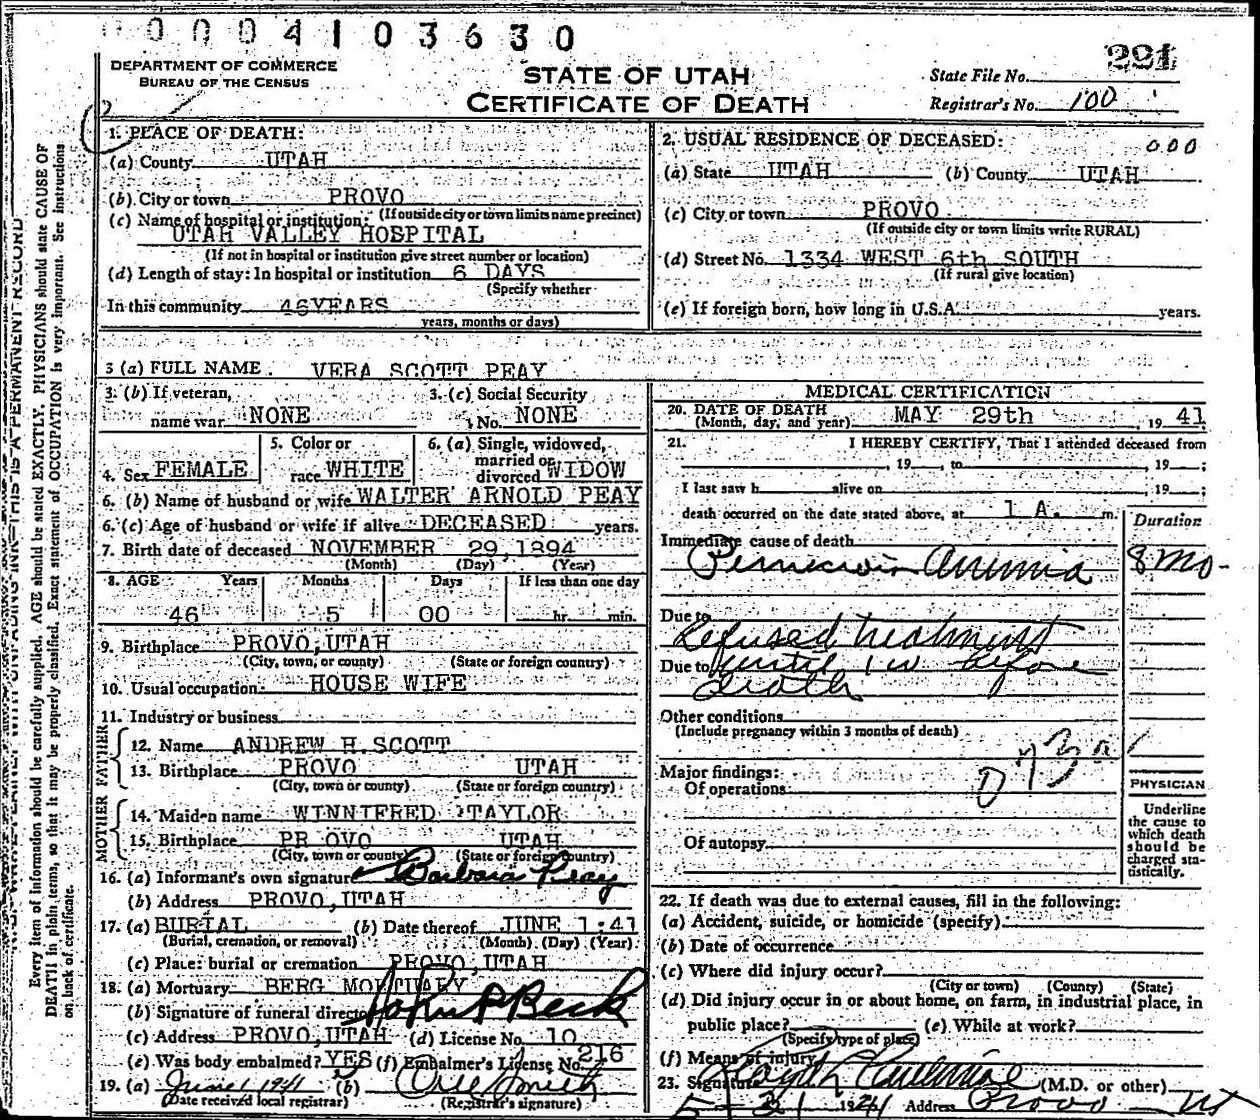 0004103630
291
DEPARTMENT OF COMMERCE
BUREAU OF THE CENSUS
STATE OF UTAH
CERTIFICATE OF DEATH
State File No.
Registrar's No. 100
Every item of information should be carefully supplied. AGE should be stated EXACTLY. PHYSICIANS should state CAUSE OF
DEATH in plain terms, so that it may be properly classified. Exact statement of OCCUPATION is very important. See instructions
on back of certificate.
1. PLACE OF DEATH:
(a) County UTAH
(b) City or town PROVO
(If outside city or town limits name precinct)
(c) Name of hospital or institution:
UTAH VALLEY HOSPITAL
(If not in hospital or institution give street number or location)
(d) Length of stay: In hospital or institution 6 DAYS
(Specify whether
In this community 46YEARS
years, months or days)
2. USUAL RESIDENCE OF DECEASED: 000
(a) State UTAH (b) County UTAH
(c) City or town PROVO
(If outside city or town limits write RURAL)
(d) Street No. 1334 WEST 6th SOUTH
(If rural give location)
(e) If foreign born, how long in U.S.A. years.
3 (a) FULL NAME. VERA SCOTT PEAY
3. (b) If veteran,
name war NONE
3. (c) Social Security
No. NONE
4. Sex FEMALE
5. Color or
race WHITE
6. (a) Single, widowed,
married or
divorced WIDOW
6. (b) Name of husband or wife WALTER ARNOLD PEAY
6. (c) Age of husband or wife if alive DECEASED years.
7. Birth date of deceased NOVEMBER 29, 1894
(Month) (Day) (Year)
8. AGE Years Months Days If less than one day
46 5 00 hr. min.
9. Birthplace PROVO, UTAH
(City, town, or county) (State or foreign country)
10. Usual occupation HOUSE WIFE
11. Industry or business
FATHER
12. Name ANDREW H. SCOTT
13. Birthplace PROVO UTAH
(City, town or county) (State or foreign country)
MOTHER
14. Maiden name WINNIFRED TAYLOR
15. Birthplace PR OVO UTAH
(City, town or county) (State or foreign country)
16. (a) Informant's own signature Barbara Peay
(b) Address PROVO, UTAH
17. (a) BURIAL (b) Date thereof JUNE 1:41
(Burial, cremation, or removal) (Month) (Day) (Year)
(c) Place: burial or cremation PROVO, UTAH
18. (a) Mortuary BERG MORTUARY
(b) Signature of funeral director
(c) Address PROVO, UTAH (d) License No. 10
(e) Was body embalmed? YES (f) Embalmer's License No. 216
19. (a) June 1 1941 (b)
(Date received local registrar) (Registrar's signature)
MEDICAL CERTIFICATION
20. DATE OF DEATH
(Month, day, and year) MAY 29th, 19 41
21. I HEREBY CERTIFY, That I attended deceased from
, 19 , to , 19 ;
I last saw h alive on , 19 ;
death occurred on the date stated above, at 1 A. m.
Duration
Immediate cause of death
Pernicious Anemia 8 mo-
Due to
Refused treatment
Due to until 1 w before
death
Other conditions
(Include pregnancy within 3 months of death)
Major findings:
Of operations
Of autopsy
PHYSICIAN
Underline
the cause to
which death
should be
charged sta-
tistically.
22. If death was due to external causes, fill in the following:
(a) Accident, suicide, or homicide (specify)
(b) Date of occurrence
(c) Where did injury occur?
(City or town) (County) (State)
(d) Did injury occur in or about home, on farm, in industrial place, in
public place? (e) While at work?
(Specify type of place)
(f) Means of injury
23. Signature (M.D. or other)
Address Provo